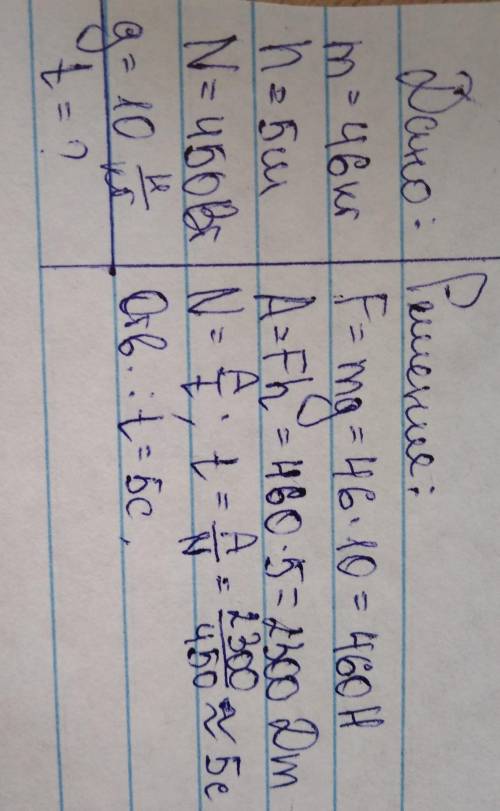 Дано:
m = 46 кг
h = 5 м
N = 450 Вт
g = 10 н/кг
t = ?
Решение:
F = mg = 46 · 10 = 460 Н
A = Fh = 460 · 5 = 2300 Дж
N = A/t; t = A/N = 2300/450 ≈ 5с
Отв.: t = 5с.